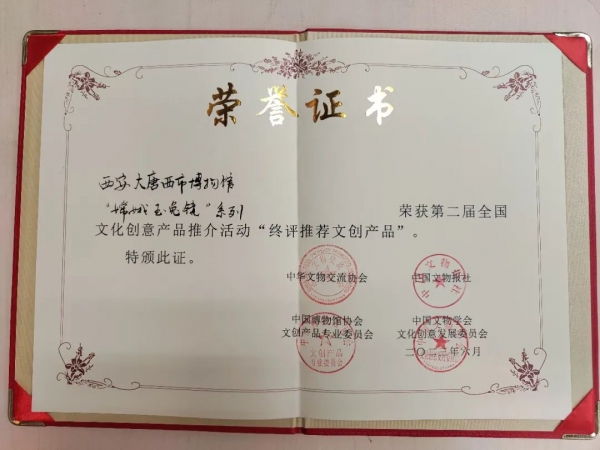 荣誉证书
西安大唐西市博物馆
“嫦娥玉兔镜”系列
荣获第二届全国
文化创意产品推介活动“终评推荐文创产品”。
特颁此证。
中华文物交流协会
中国文物报社
中国博物馆协会
文创产品专业委员会
中国文物学会
文化创意发展委员会
年六月
中国文物报社
文创产品
专业委员会